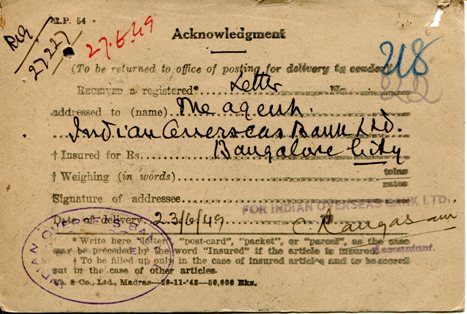 R.P. 54
Reg
27227
27.6.49
Acknowledgment
218
(To be returned to office of posting for delivery to sender)
Received a registered* Letter No.
addressed to (name) The agent.
Indian Overseas Bank Ltd.
† Insured for Rs. Bangalore City
† Weighing (in words) tolas
Signature of addressee
FOR INDIAN OVERSEAS BANK LTD.
Date of delivery 23/6/49
Accountant.
* Write here "letter" "post-card", "packet", or "parcel", as the case
may be preceded by the word "Insured" if the article is insured.
† To be filled up only in the case of insured articles and to be scored
out in the case of other articles.
& Co., Ltd., Madras—20-11-'42—50,000 Bks.
INDIAN OVERSEAS BANK